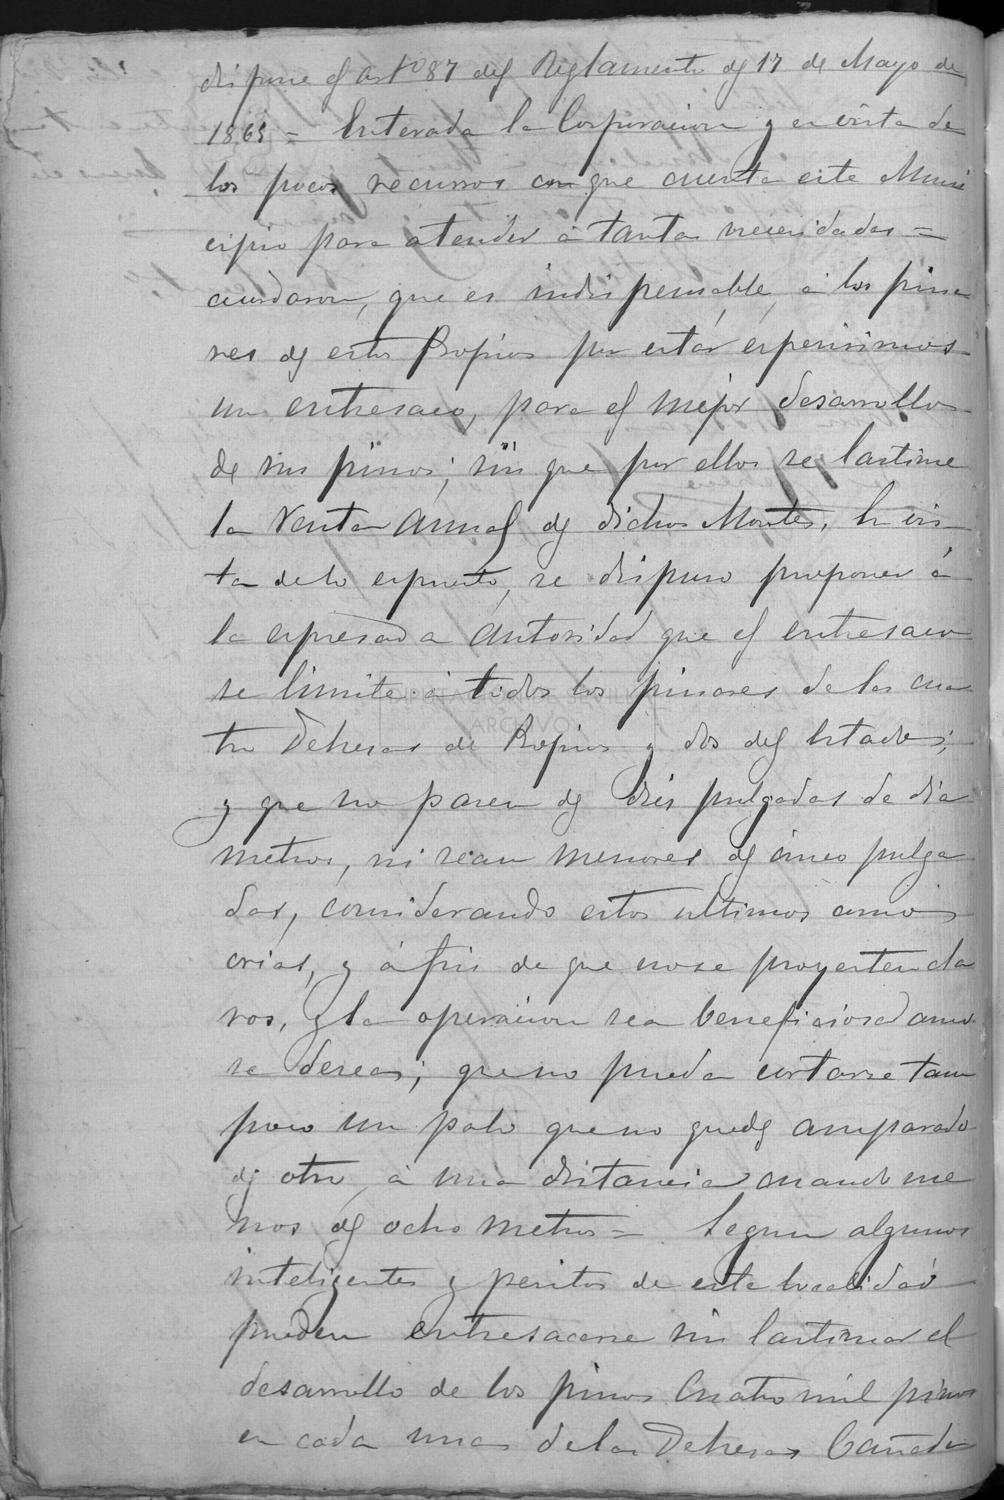 dispone el artº 87 del Reglamento de 17 de Mayo de
1865 = Enterada la Corporacion y en vista de
los pocos recursos con que cuenta este Muni
cipio para atender á tantas necesidades =
acordaron, que es indispensable, á los pina
res de estos Propios por estár espesisimos
un entresaco, para el mejor desarrollo
de sus pinos; sin que por ellos se lastime
la Renta Anual de dichos Montes. En vis
ta de lo espuesto, se dispuso proponer á
la espresada Autoridad que el entresaco
se limite á todos los pinares de las cua
tro Dehesas de Propios y dos del Estado;
y que no pasen de diés pulgadas de dia
metros, ni sean menores de cinco pulga
das, considerando estos ultimos como
crias, y á fin de que no se proyecten cla
ros, y la operacion sea beneficiosa como
se desea; que no pueda cortarse tam
poco un palo que no quede amparado
de otro, á una distancia cuando me
nos de ocho metros = Segun algunos
inteligentes y peritos de esta localidad
pueden entresacarse sin lastimar el
desarrollo de los pinos Cuatro mil pinos
en cada una de las Dehesas Cañada
DIPUTACION DE SEVILLA
ARCHIVO